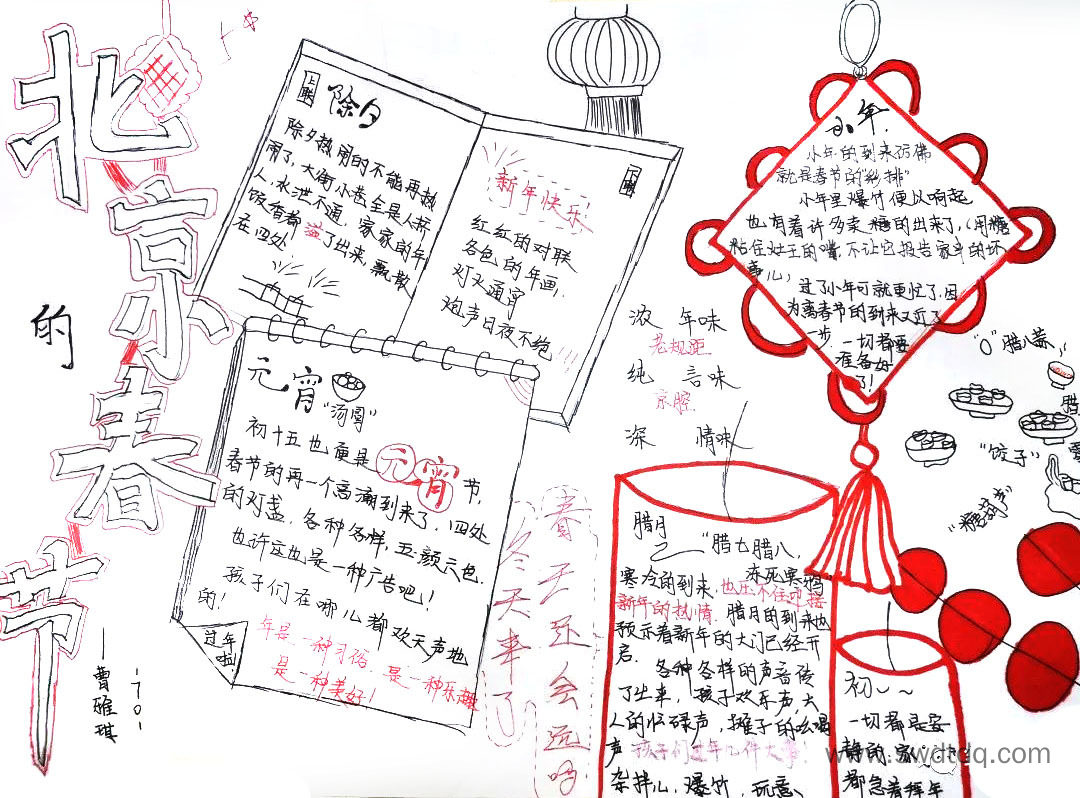 北京的春节
——曹雅琪
1701
上联
除夕
除夕热闹的不能再热
闹了,大街小巷全是人挤
人,水泄不通,家家的年
饭香都溢了出来,飘散
在四处
下联
新年快乐!
红红的对联
各色的年画,
灯火通宵
炮声日夜不绝
元宵
“汤圆”
初十五也便是元宵节,
春节的再一个高潮到来了,四处
的灯盏,各种各样,五颜六色.
也许这也是一种广告吧!
孩子们在哪儿都欢天声地
的!
年是一种习俗 是一种乐趣
是一种美好!
过年啦
小年
小年的到来仿佛
就是春节的“彩排”
小年里爆竹便以响起
也有着许多卖糖的出来了,(用糖
粘住灶王的嘴,不让它报告家年的坏
事儿)
过了小年可就更忙了.因
为离春节的到来又近了
一步 一切都要
准备好
了!
浓 年味
老规矩
纯 言味
京腔
深 情味
“腊八蒜”
“饺子”
“糖葫芦”
冬天来了
春天还会远吗
腊月
“腊七腊八,
冻死寒鸦
寒冷的到来.也压不住迎接
新年的热情.腊月的到来也
预示着新年的大门已经开
启. 各种各样的声音传
了出来,孩子欢乐声,大
人的忙碌声,摊子的么喝
声 孩子们过年几件大事!
杂拌儿,爆竹,玩意、
初一~
一切都是安
静的.家
都急着拜年